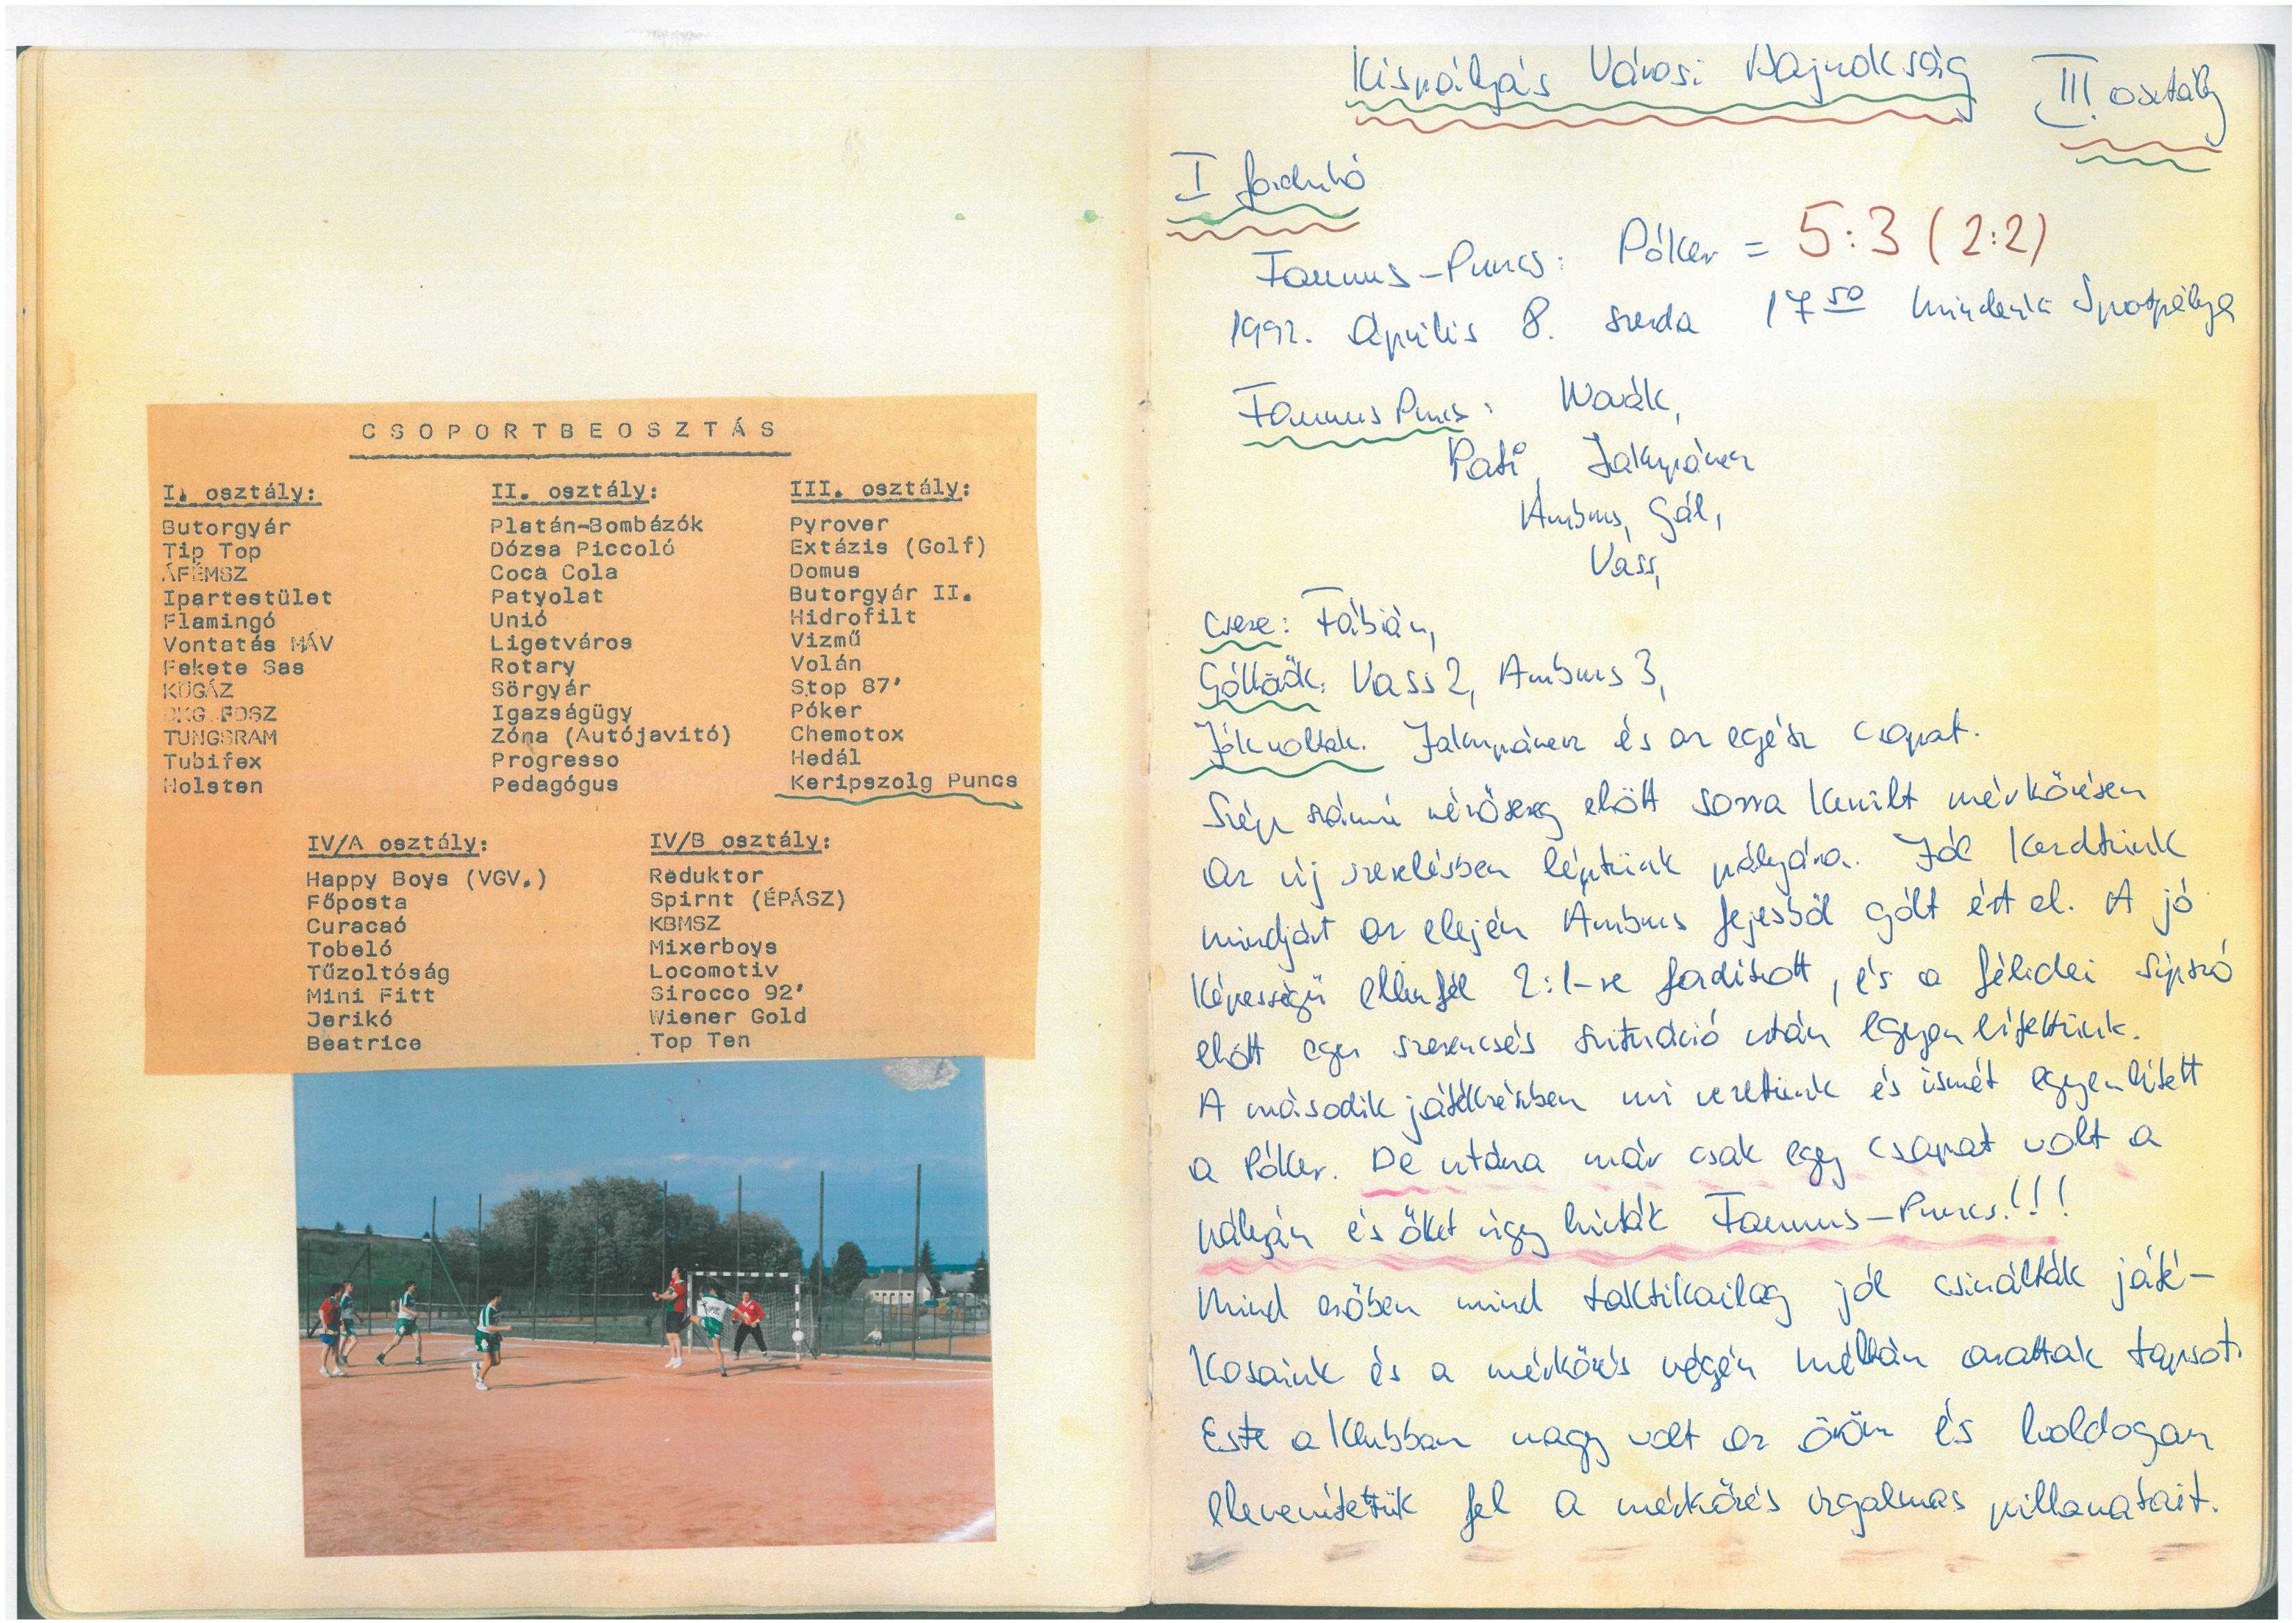 CSOPORTBEOSZTÁS
I. osztály:
Butorgyár
Tip Top
ÁFÉMSZ
Ipartestület
Flamingó
Vontatás MÁV
Fekete Sas
KÖGÁZ
DKG.FOSZ
TUNGSRAM
Tubifex
Holsten
II. osztály:
Platán-Bombázók
Dózsa Piccoló
Coca Cola
Patyolat
Unió
Ligetváros
Rotary
Sörgyár
Igazságügy
Zóna (Autójavitó)
Progresso
Pedagógus
III. osztály:
Pyrover
Extázis (Golf)
Domus
Butorgyár II.
Hidrofilt
Vizmű
Volán
Stop 87'
Póker
Chemotox
Hedál
Keripszolg Puncs
IV/A osztály:
Happy Boys (VGV.)
Főposta
Curacaó
Tobeló
Tűzoltóság
Mini Fitt
Jerikó
Beatrice
IV/B osztály:
Reduktor
Spirnt (ÉPÁSZ)
KBMSZ
Mixerboys
Locomotiv
Sirocco 92'
Wiener Gold
Top Ten
Kispályás Városi Bajnokság III. osztály
I forduló
Taurus-Puncs: Póker = 5:3 (2:2)
1992. Április 8. szerda 17 50 Mindenki Sportpálya
Taurus Puncs: Novák,
Pati, Jakupánecz
Ambrus, Gál,
Vass,
Csere: Fábián,
Góllövők: Vass 2, Ambrus 3,
Jók voltak. Jakupánecz és az egész csapat.
Szép számú nézősereg előtt sorra került mérkőzésen
az új szerelésben léptünk pályára. Jól kezdtünk
mindjárt az elején Ambrus fejesből gólt ért el. A jó
képességű ellenfél 2:1-re fordított, és a félidei sípszó
előtt egy szerencsés szituáció után egyenlítettünk.
A második játékrészben mi vezetünk és ismét egyenlített
a Póker. De utána már csak egy csapat volt a
pályán és őket úgy hívták Taurus-Puncs!!!
Mind erőben mind taktikailag jól csinálták játé-
kosaink és a mérkőzés végén méltán arattak tapsot.
Este a Klubban nagy volt az öröm és boldogan
elevenítettük fel a mérkőzés izgalmas pillanatait.